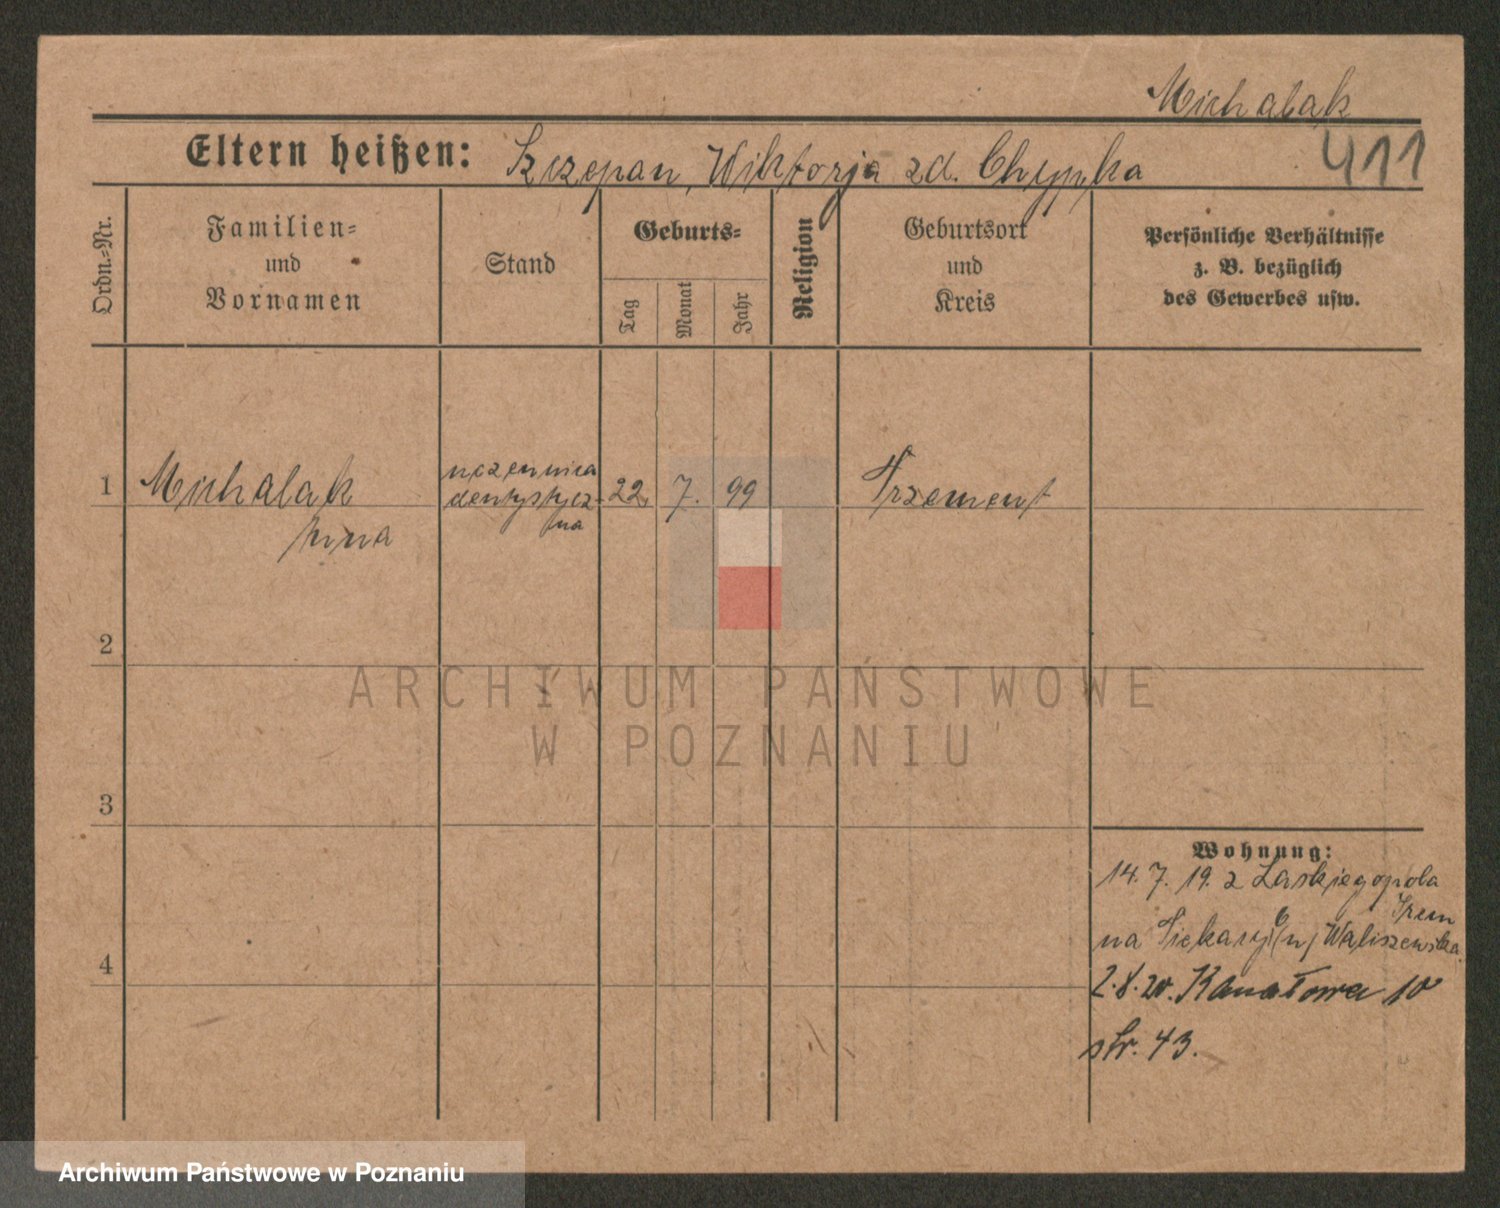 Michalak
411
Eltern heißen: Szczepan, Wiktorja zd. Chypka
Ordn.-Nr.
Familien-
und
Vornamen
Stand
Geburts-
Tag
Monat
Jahr
Religion
Geburtsort
und
Kreis
Persönliche Verhältnisse
z. B. bezüglich
des Gewerbes usw.
1 Michalak uczennica dentystycz- 22. 7. 99 Trzement
na
Anna
2
3
4
Wohnung:
14. 7. 19. z Laskiegopola
Szrem
na Piekary 6 (n) Waliszewska
2.8.20. Kanałowa 10
str. 43.
ARCHIWUM PAŃSTWOWE
W POZNANIU
Archiwum Państwowe w Poznaniu